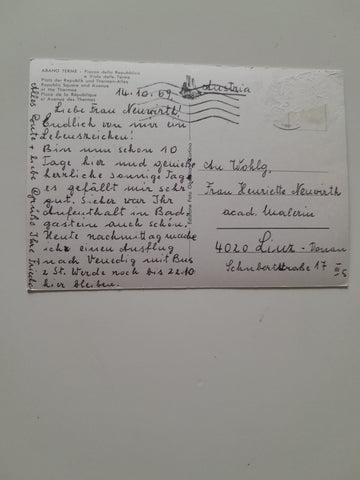 ABANO TERME - Piazza della Repubblica
e Viale delle Terme
Platz der Republik und Thermen-Allee
Republic Square and Avenue
of the Thermae
Place de la République
et Avenue des Thermes
14.10.69
Austria
Liebe Frau Neuwirth!
Endlich von mir ein
Lebenszeichen!
Bin nun schon 10
Tage hier und genieße
herrliche sonnige Tage
es gefällt mir sehr
gut. Sicher war Ihr
Aufenthalt in Bad
gastein auch schön.
Heute nachmittag mache
ich einen Ausflug
nach Venedig mit Bus
2 St. Werde noch bis 22.10
hier bleiben.
Alles Gute + liebe Grüße Ihre
An Wohlg.
Frau Henriette Neuwirth
acad. Malerin
4020 Linz - Donau
Schubertstraße 17